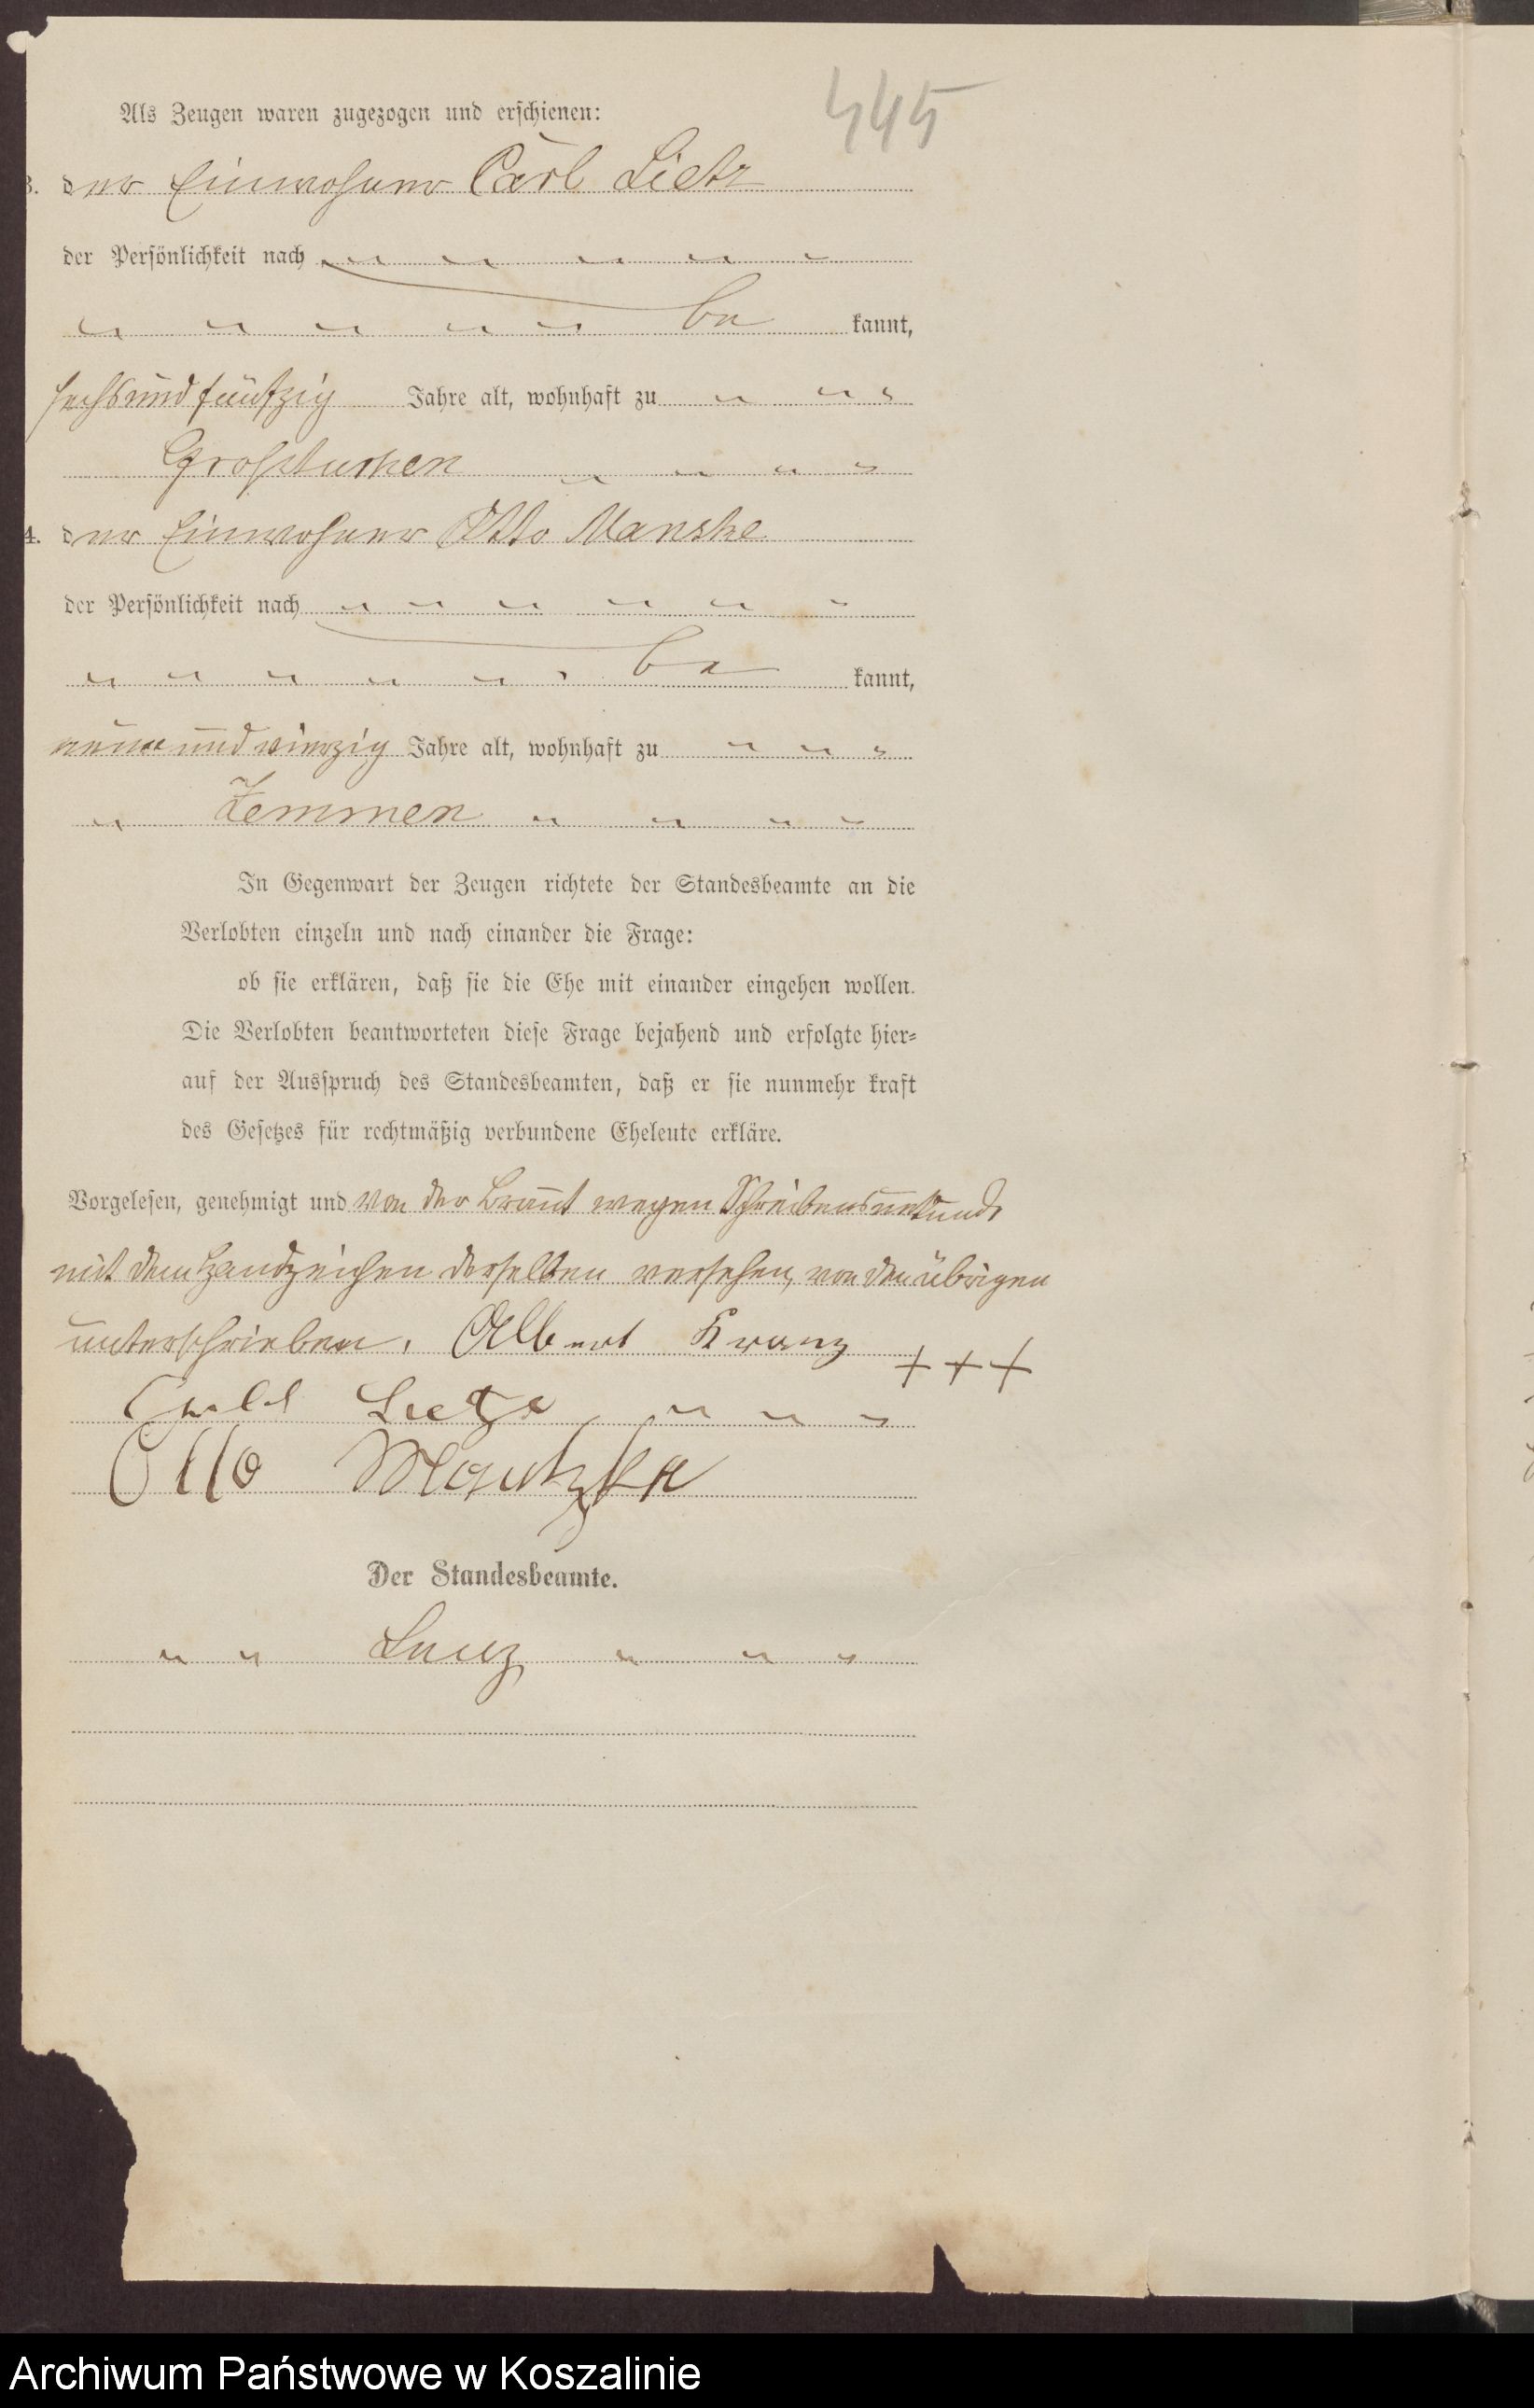 445
Als Zeugen waren zugezogen und erschienen:
3. der Einwohner Carl Lietz
der Persönlichkeit nach
be kannt,
sechsundfünfzig Jahre alt, wohnhaft zu
Großtuchen
4. der Einwohner Otto Manske
der Persönlichkeit nach
be kannt,
neunundvierzig Jahre alt, wohnhaft zu
Zemmen
In Gegenwart der Zeugen richtete der Standesbeamte an die
Verlobten einzeln und nach einander die Frage:
ob sie erklären, daß sie die Ehe mit einander eingehen wollen.
Die Verlobten beantworteten diese Frage bejahend und erfolgte hier-
auf der Ausspruch des Standesbeamten, daß er sie nunmehr kraft
des Gesetzes für rechtmäßig verbundene Eheleute erkläre.
Vorgelesen, genehmigt und von der Braut wegen Schreibensunkunde
mit dem Handzeichen derselben versehen, von den übrigen
unterschrieben. Albert Kranz +++
Lietz
Otto
Der Standesbeamte.
Archiwum Państwowe w Koszalinie